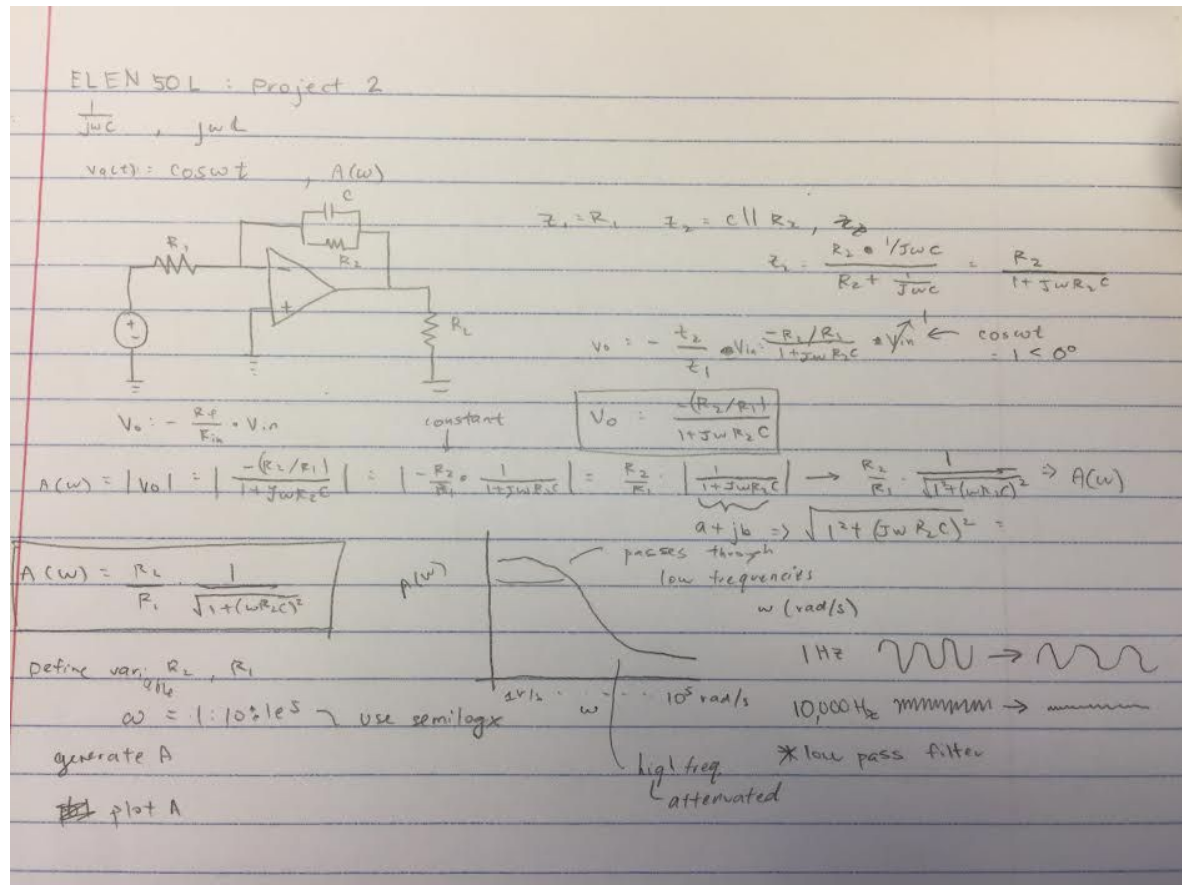 ELEN 50L : Project 2
1/jωC , jωL
Vg(t) = cosωt , A(ω)
C
R1
R2
RL
Z1 = R1 Z2 = C || R2,
Z2 = (R2 • 1/jωC)/(R2 + 1/jωC) = R2/(1 + jωR2C)
Vo = - Z2/Z1 • Vin = (-R2/R1)/(1+jωR2C) • Vin 1 ← cosωt
= 1 < 0°
Vo = - Rf/Rin • Vin
constant
Vo = -(R2/R1)/(1+jωR2C)
A(ω) = |Vo| = |-(R2/R1)/(1+jωR2C)| = |-R2/R1 • 1/(1+jωR2C)| = R2/R1 · |1/(1+jωR2C)| → R2/R1 · 1/√(1²+(ωR2C)²) ⇒ A(ω)
a + jb ⇒ √(1² + (jωR2C)²) =
A(ω) = R2/R1 · 1/√(1+(ωR2C)²)
A(ω)
passes through
low frequencies
ω (rad/s)
1 r/s ω 10⁵ rad/s
high freq.
attenuated
1 Hz →
10,000 Hz →
* low pass filter
Define variable R2, R1
use semilogx
generate A
plot A